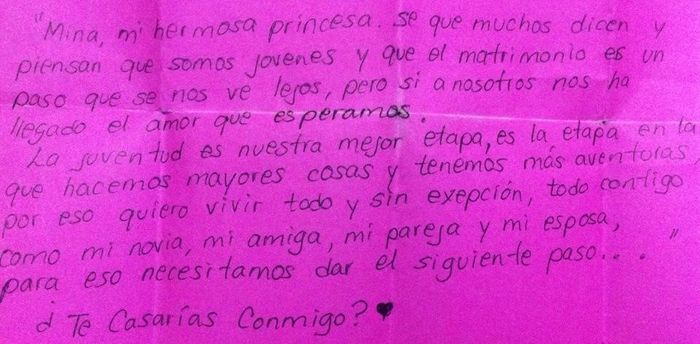 "Mina, mi hermosa princesa. se que muchos dicen y
piensan que somos jovenes y que el matrimonio es un
paso que se nos ve lejos, pero si a nosotros nos ha
llegado el amor que esperamos.
La juventud es nuestra mejor etapa, es la etapa en la
que hacemos mayores cosas y tenemos más aventuras
por eso quiero vivir todo y sin exepción, todo contigo
como mi novia, mi amiga, mi pareja y mi esposa,
para eso necesitamos dar el siguiente paso... "
¿Te Casarías Conmigo? ♥